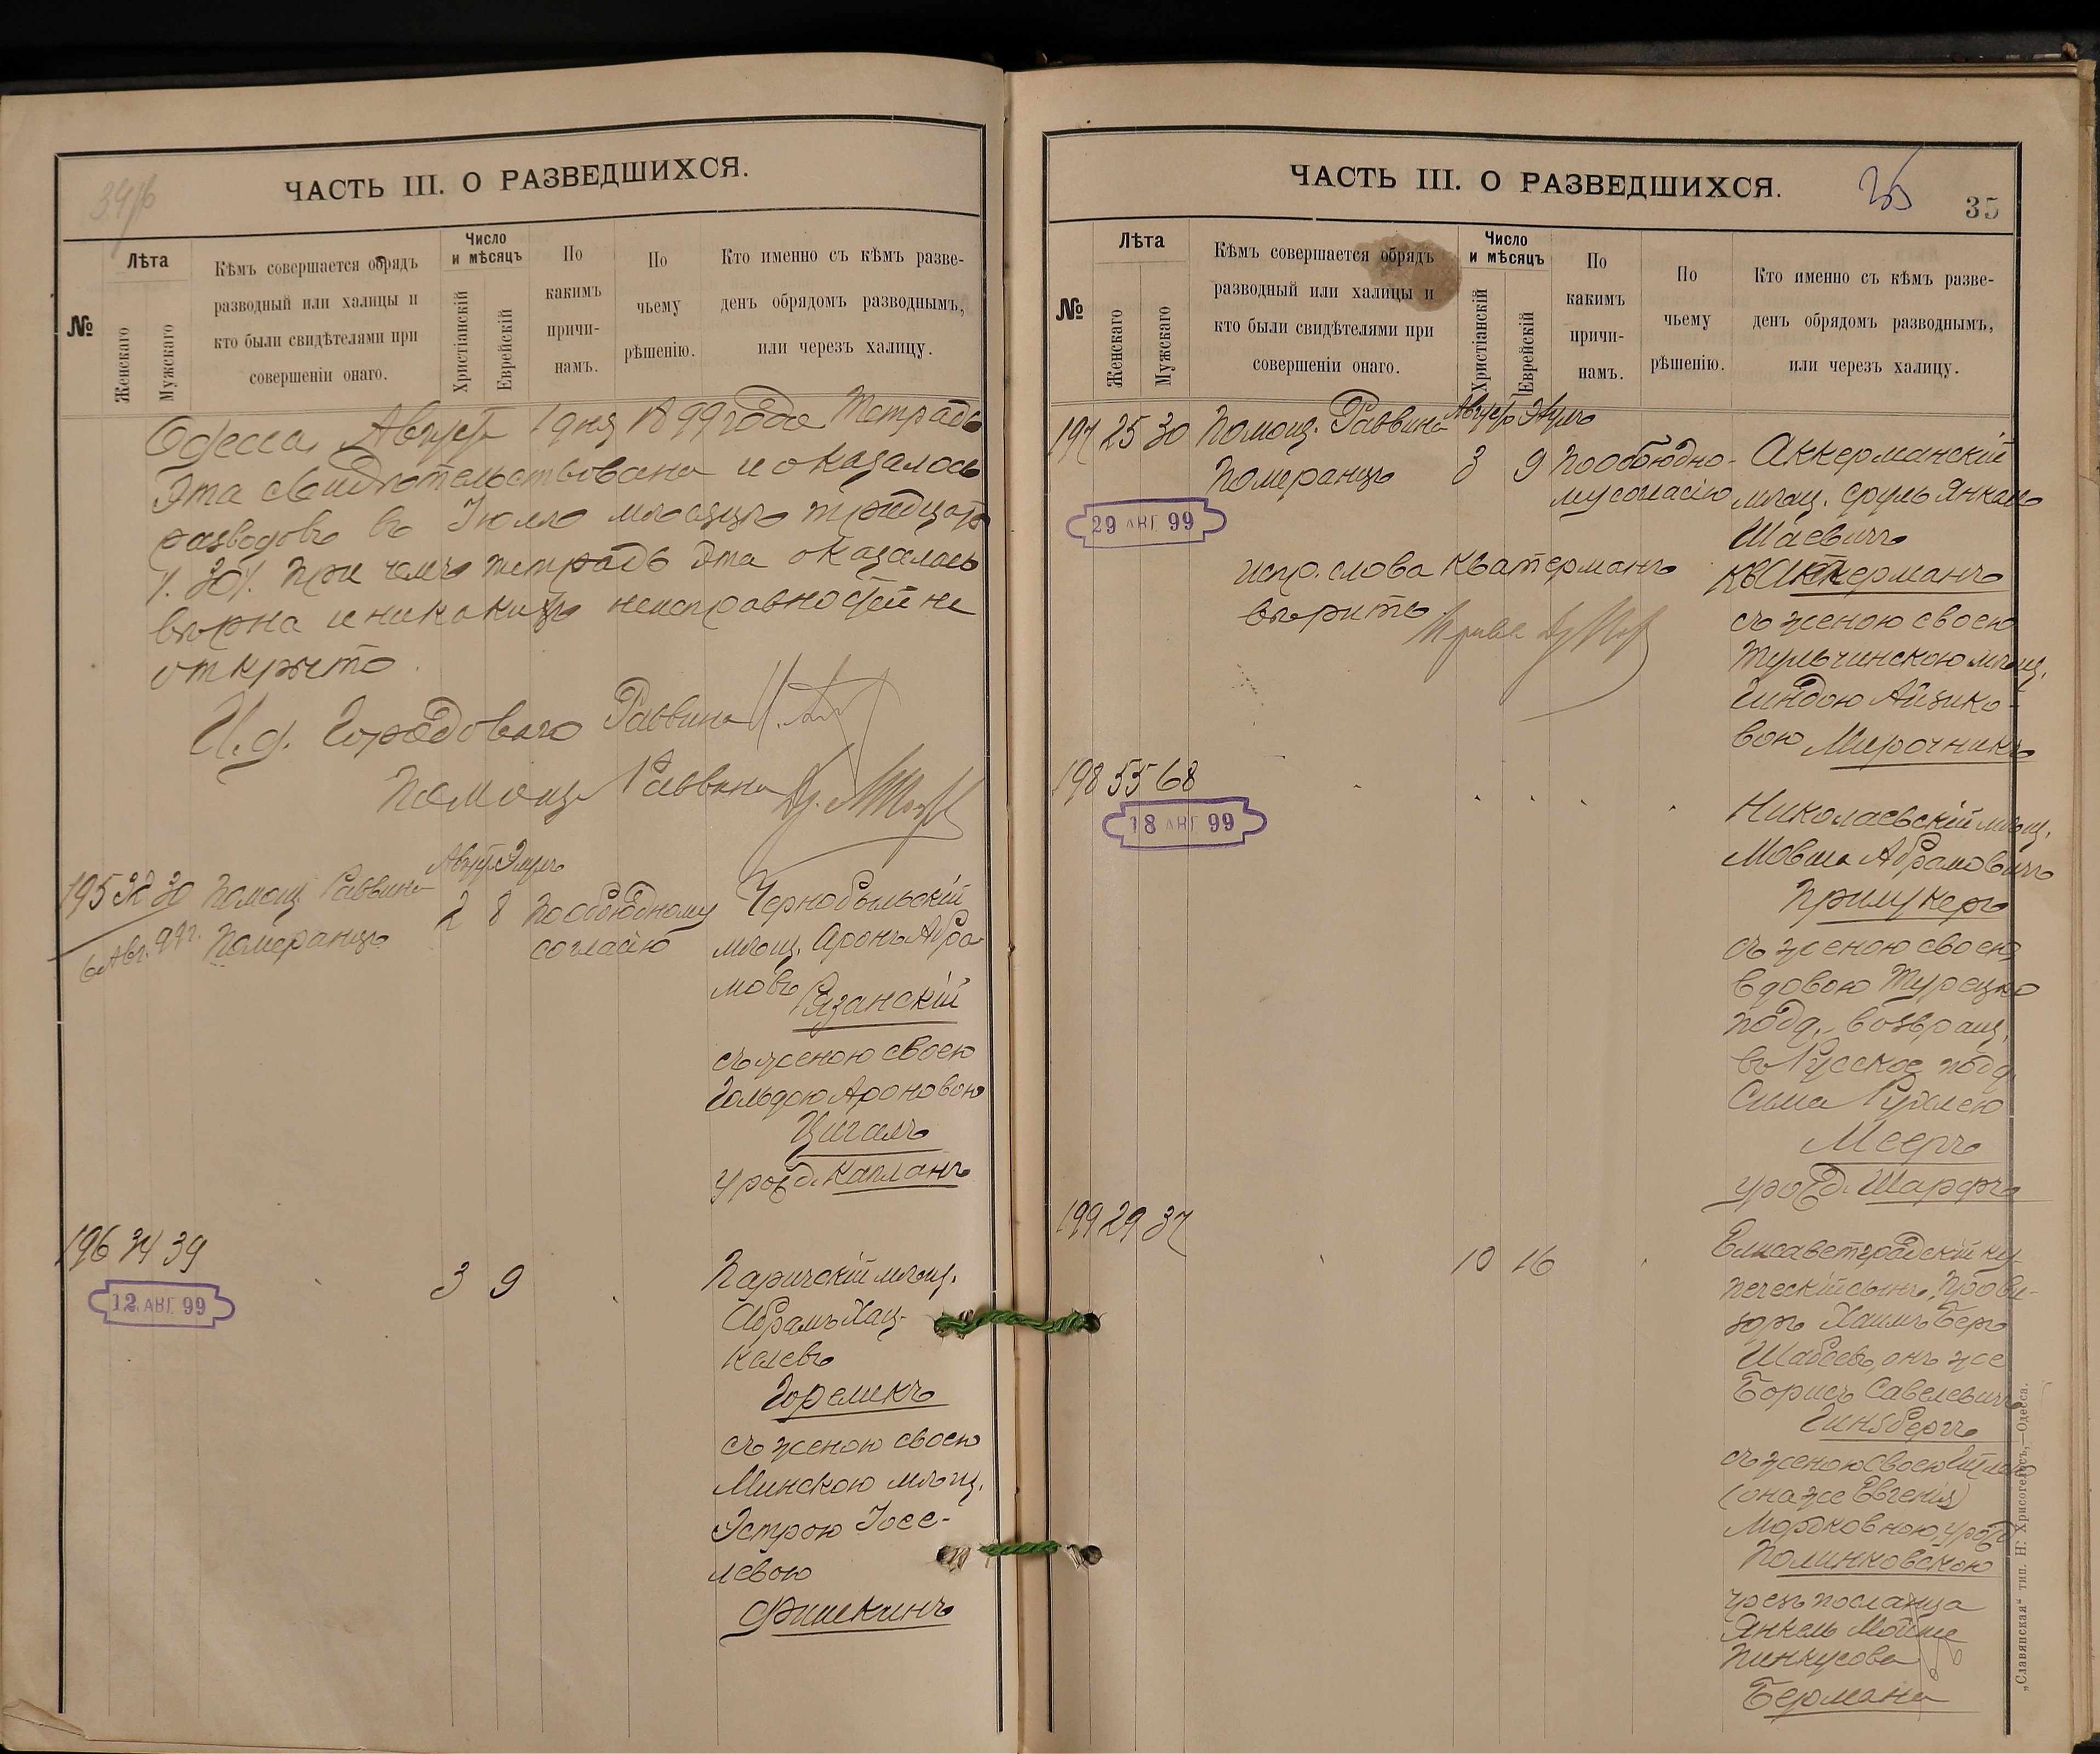 34/б
ЧАСТЬ III. О РАЗВЕДШИХСЯ.
№
Лѣта
Женскаго
Мужскаго
Кѣмъ совершается обрядъ
разводный или халицы и
кто были свидѣтелями при
совершеніи онаго.
Число
и мѣсяцъ
Христіанскій
Еврейскій
По
какимъ
причи-
намъ.
По
чьему
рѣшенію.
Кто именно съ кѣмъ разве-
денъ обрядомъ разводнымъ,
или черезъ халицу.
Одесса, Август 1 дня 1899 года Тетрадь
эта свидѣтельствована и оказалось
разводовъ въ Іюлѣ мѣсяцѣ тридцать
/. 30/. При чемъ тетрадь эта оказалась
вѣрна и никакихъ неисправностей не
открыто.
И. д. Городового Раввина
Помощ. Раввина
Август Элулъ
195 30 Помощ. Раввина
6 Авг. 99 г. Померанцъ
2 8 По обоюдному
согласію
Чернобыльскій
мѣщ. Аронъ Абра-
мовъ
Рязанскій
съ женою своею
Гольдою Ароновою
Цигалъ
урожд. Капланъ
196 34 39
12 АВГ 99
3 9
Паричскій мѣщ.
Абрамъ Хац-
келевъ
Гореликъ
съ женою своею
Минскою мѣщ.
Эстрою Іосе-
левою
Фишкинъ
ЧАСТЬ III. О РАЗВЕДШИХСЯ.
35
35
№
Лѣта
Женскаго
Мужскаго
Кѣмъ совершается обрядъ
разводный или халицы и
кто были свидѣтелями при
совершеніи онаго.
Число
и мѣсяцъ
Христіанскій
Еврейскій
По
какимъ
причи-
намъ.
По
чьему
рѣшенію.
Кто именно съ кѣмъ разве-
денъ обрядомъ разводнымъ,
или черезъ халицу.
Август Элулъ
197 25 30 Помощ. Раввина
Померанцъ
3 9 По обоюдно-
му согласію
29 АВГ 99
Аккерманскій
мѣщ. Сруль Янкель
Шаевичъ
Кватерманъ
испр. слова Кватерманъ
вѣрить.
съ женою своею
Тульчинскою мѣщ.
Гиндою Айзико-
вою Мирочникъ
198 55 68
18 АВГ 99
Николаевскій мѣщ.
Мовша Абрамовичъ
Прилукеръ
съ женою своею,
вдовою Турецко
подд., возвращ.
въ Русское подд.
Сима Рухлею
Мееръ
урожд. Шарфъ
199 29 37
10 16
Елисаветградскій ку-
печескій сынъ, прови-
зоръ Хаимъ Беръ
Шабсевъ, онъ же
Борисъ Савельевичъ
Гинзбергъ
съ женою своею
(она же Евгенія)
Мордковною, урожд.
Полинковскою
чрезъ посланца
Янкель Мойше
Пинкусова
Бермана
„Славянская“ тип. Н. Хрисогелосъ,—Одесса.